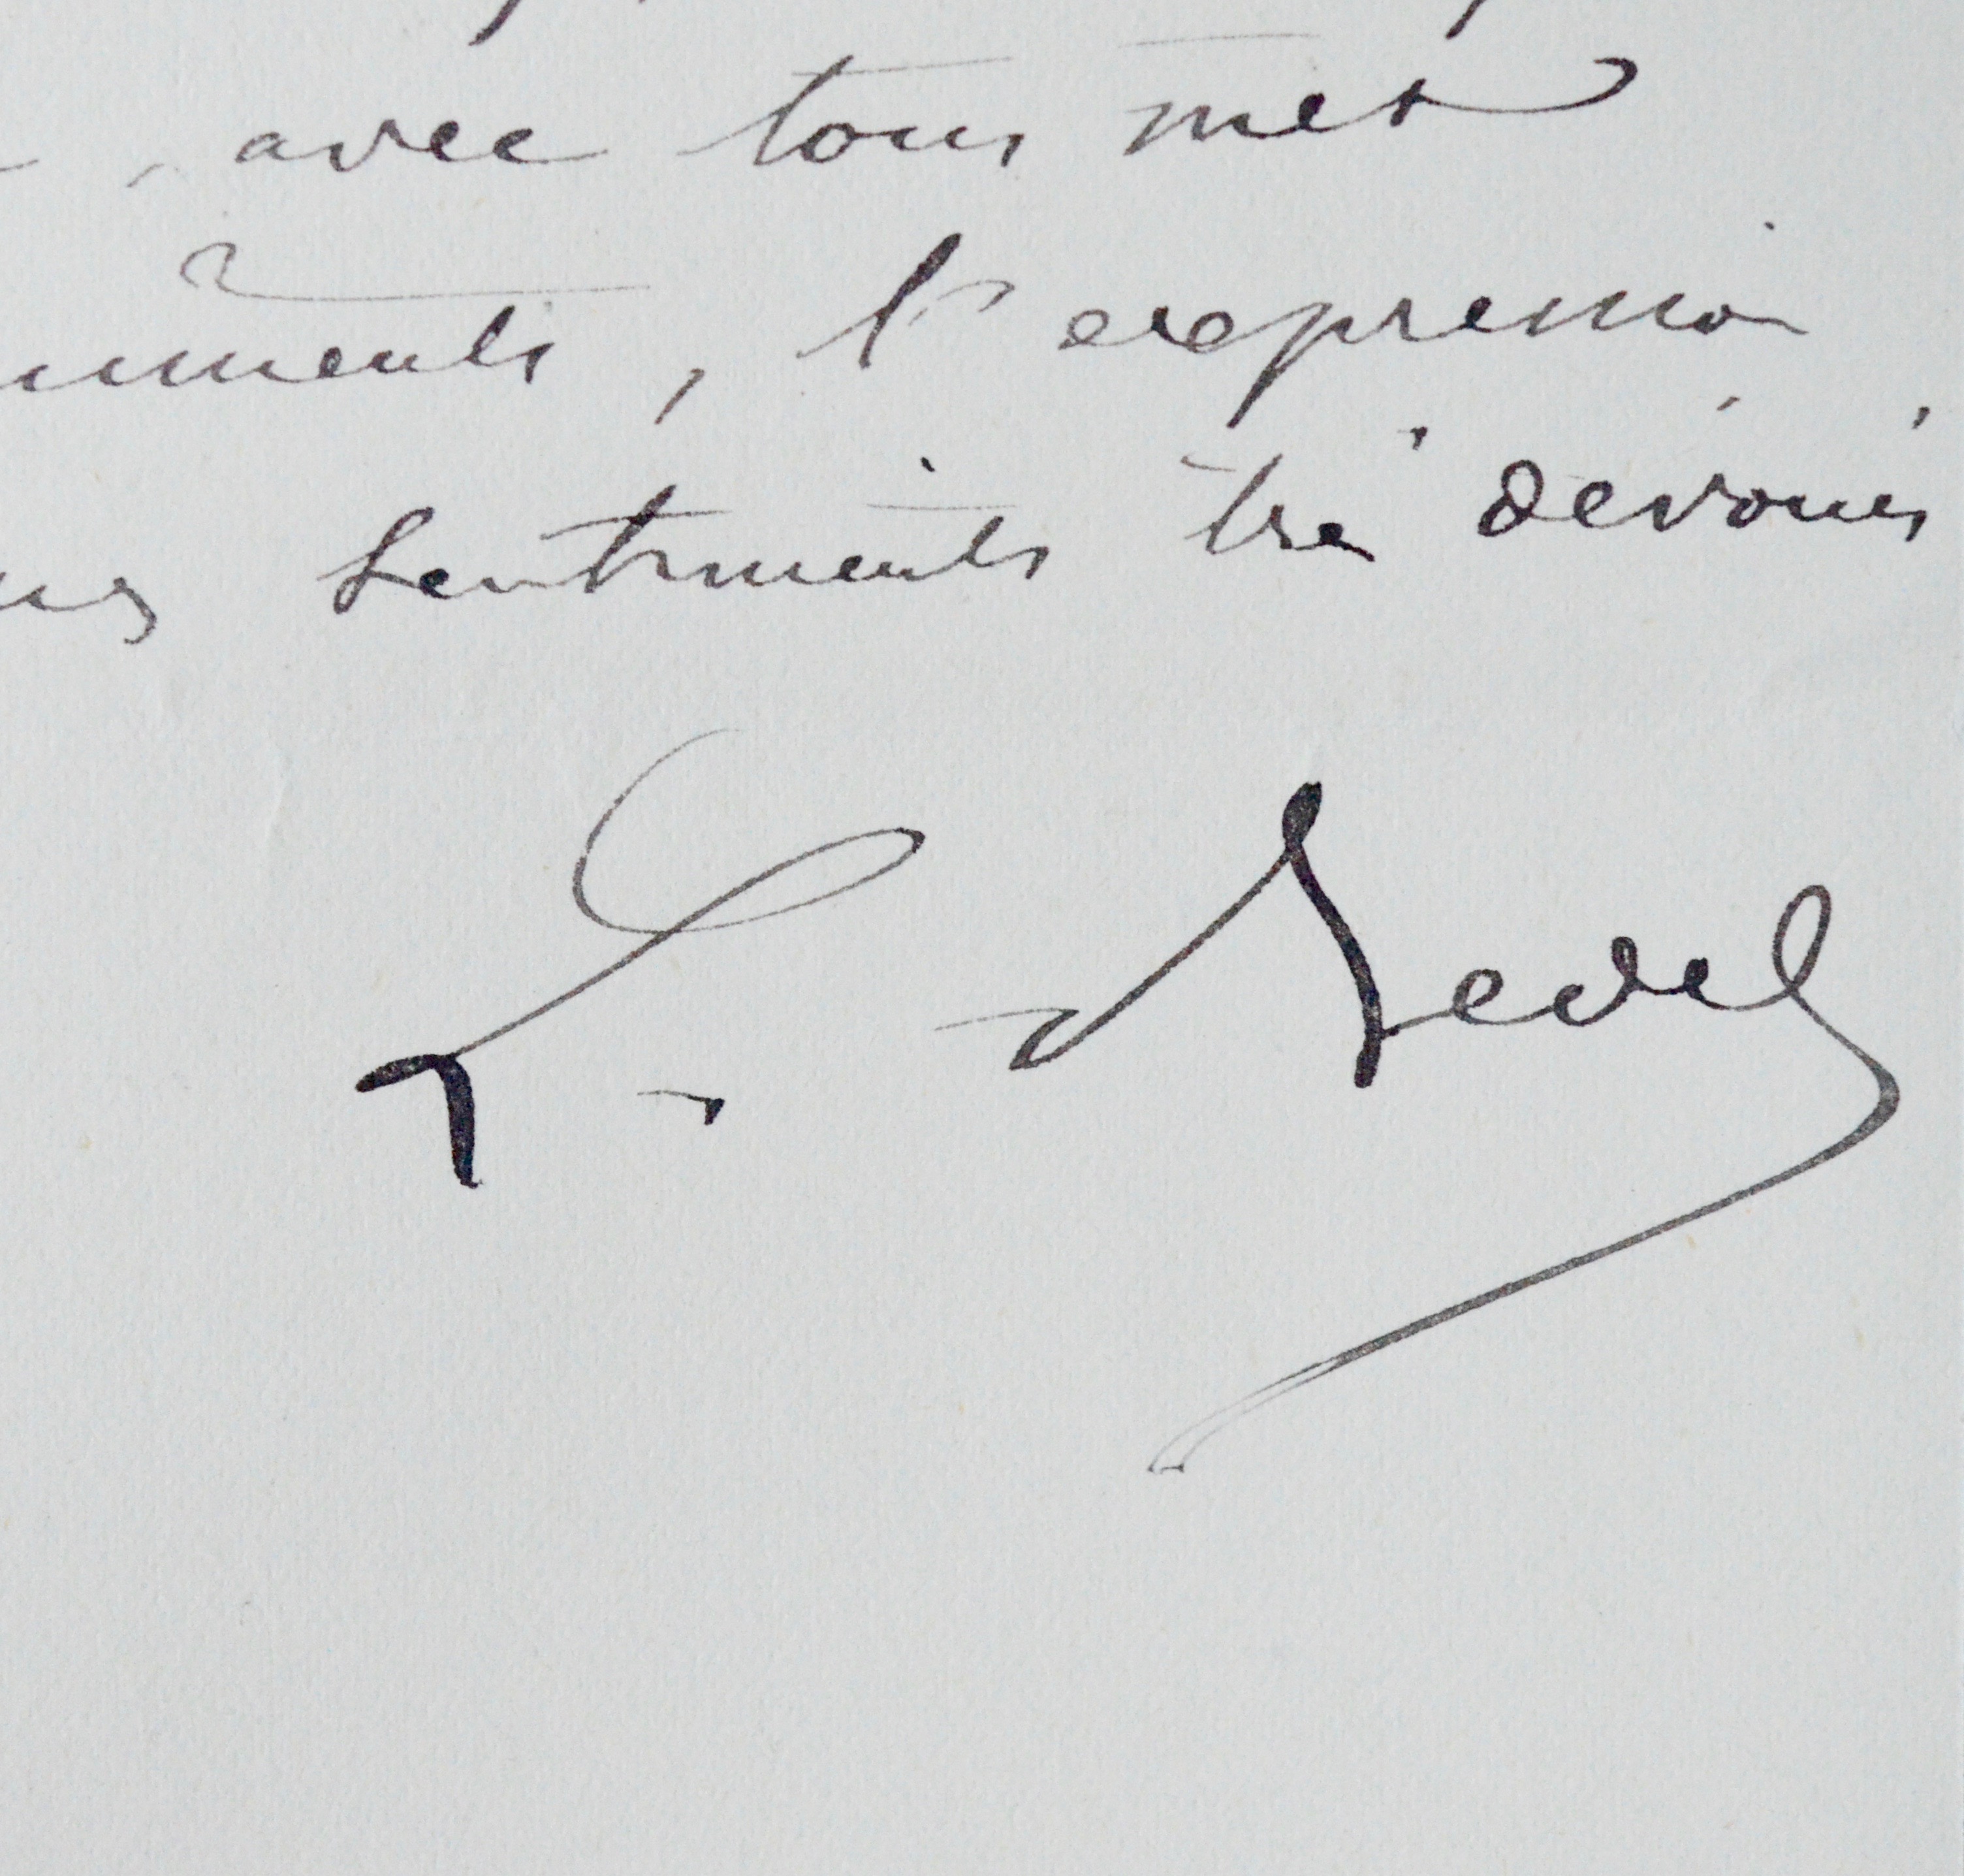 , avec tous mes
uments, l'expression
sentiments très dévoués
L.